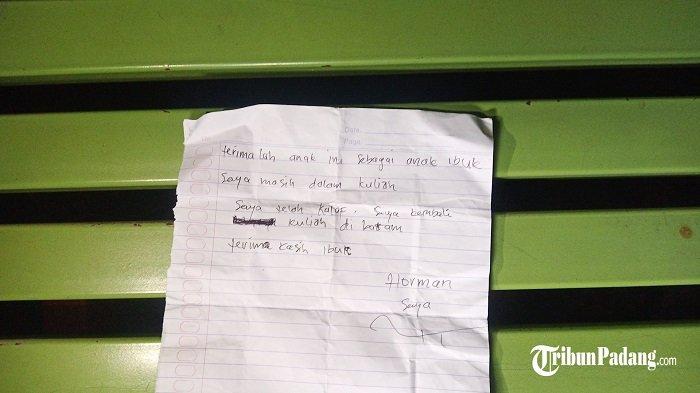 Date
Page
terimalah anak ini sebagai anak ibuk
Saya masih dalam kuliah
Saya telah Kalaf. Saya kembali
kuliah di batam
terima kasih ibuk
Horman
Saya
TribunPadang.com